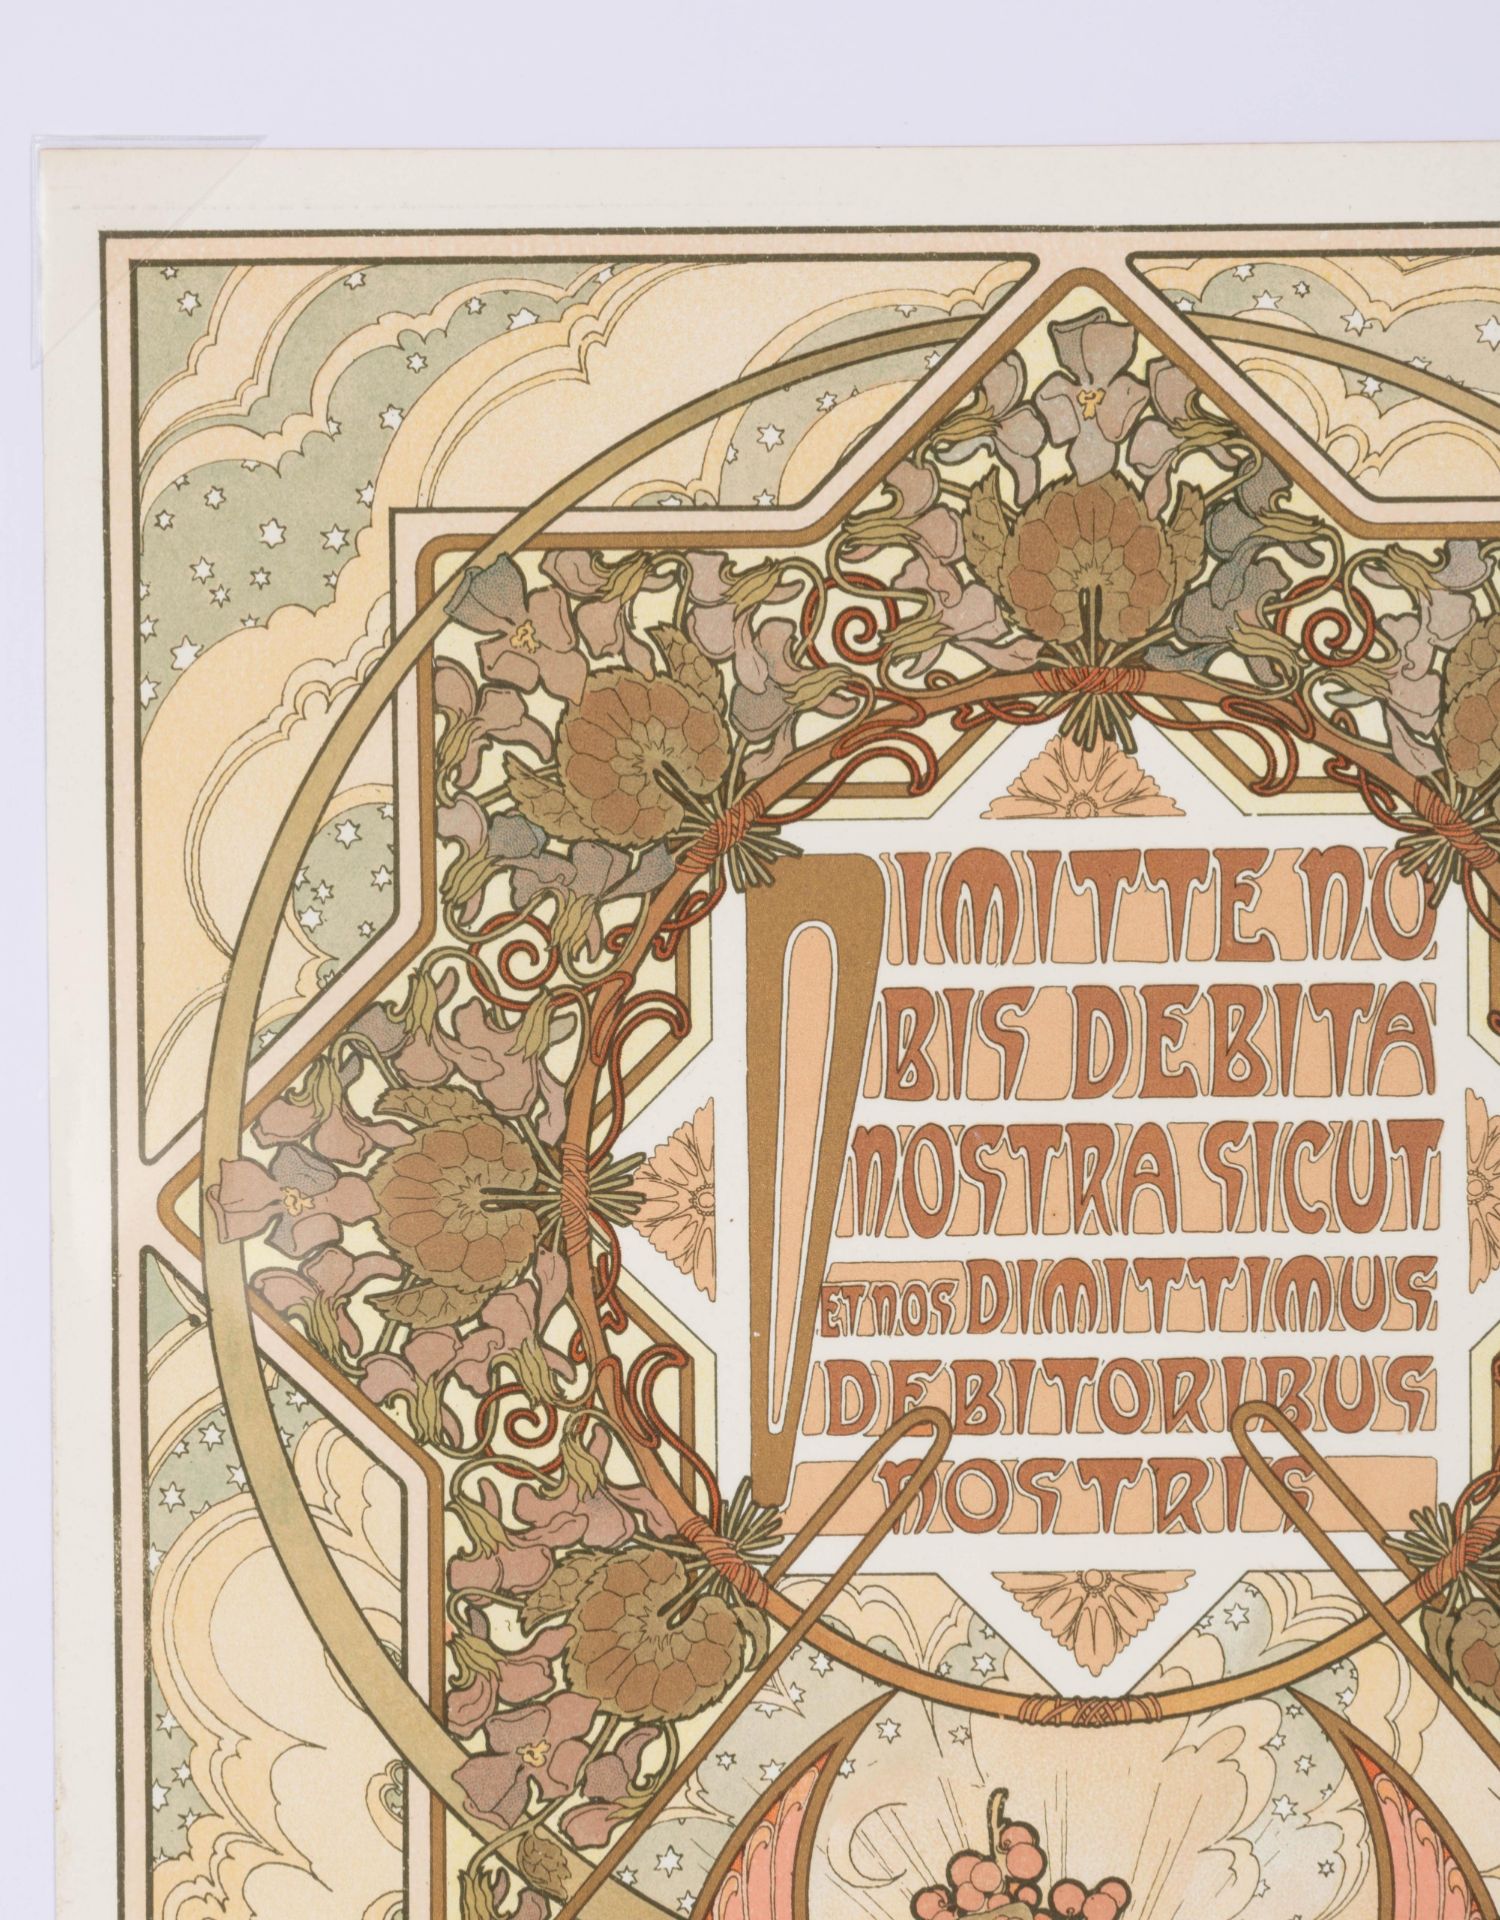 DIMITTE NO
BIS DEBITA
NOSTRA SICUT
ET NOS DIMITTIMUS
DEBITORIBUS
NOSTRIS